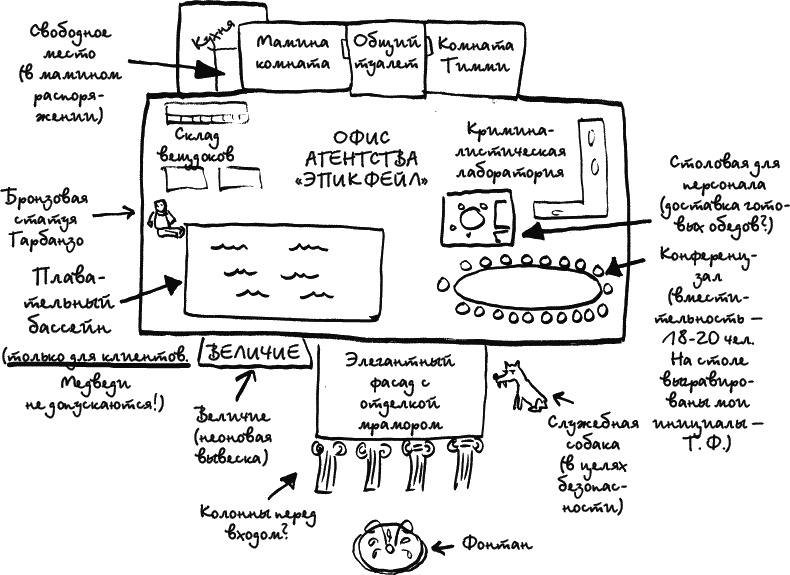 Свободное
место
(в мамином
распоря-
жении)
Кухня
Мамина
комната
Общий
туалет
Комната
Тимми
Склад
вещдоков
ОФИС
АГЕНТСТВА
«ЭПИК ФЕЙЛ»
Кримина-
листическая
лаборатория
Столовая для
персонала
(доставка гото-
вых обедов?)
Бронзовая
статуя
Гарбанзо
Плава-
тельный
бассейн
(только для клиентов.
Медведи
не допускаются!)
Конференц-
зал
(вмести-
тельность —
18-20 чел.
На столе
выгравиро-
ваны мои
инициалы —
Т. Ф.)
ВЕЛИЧИЕ
Величие
(неоновая
вывеска)
Элегантный
фасад с
отделкой
мрамором
Служебная
собака
(в целях
безопас-
ности)
Колонны перед
входом?
Фонтан